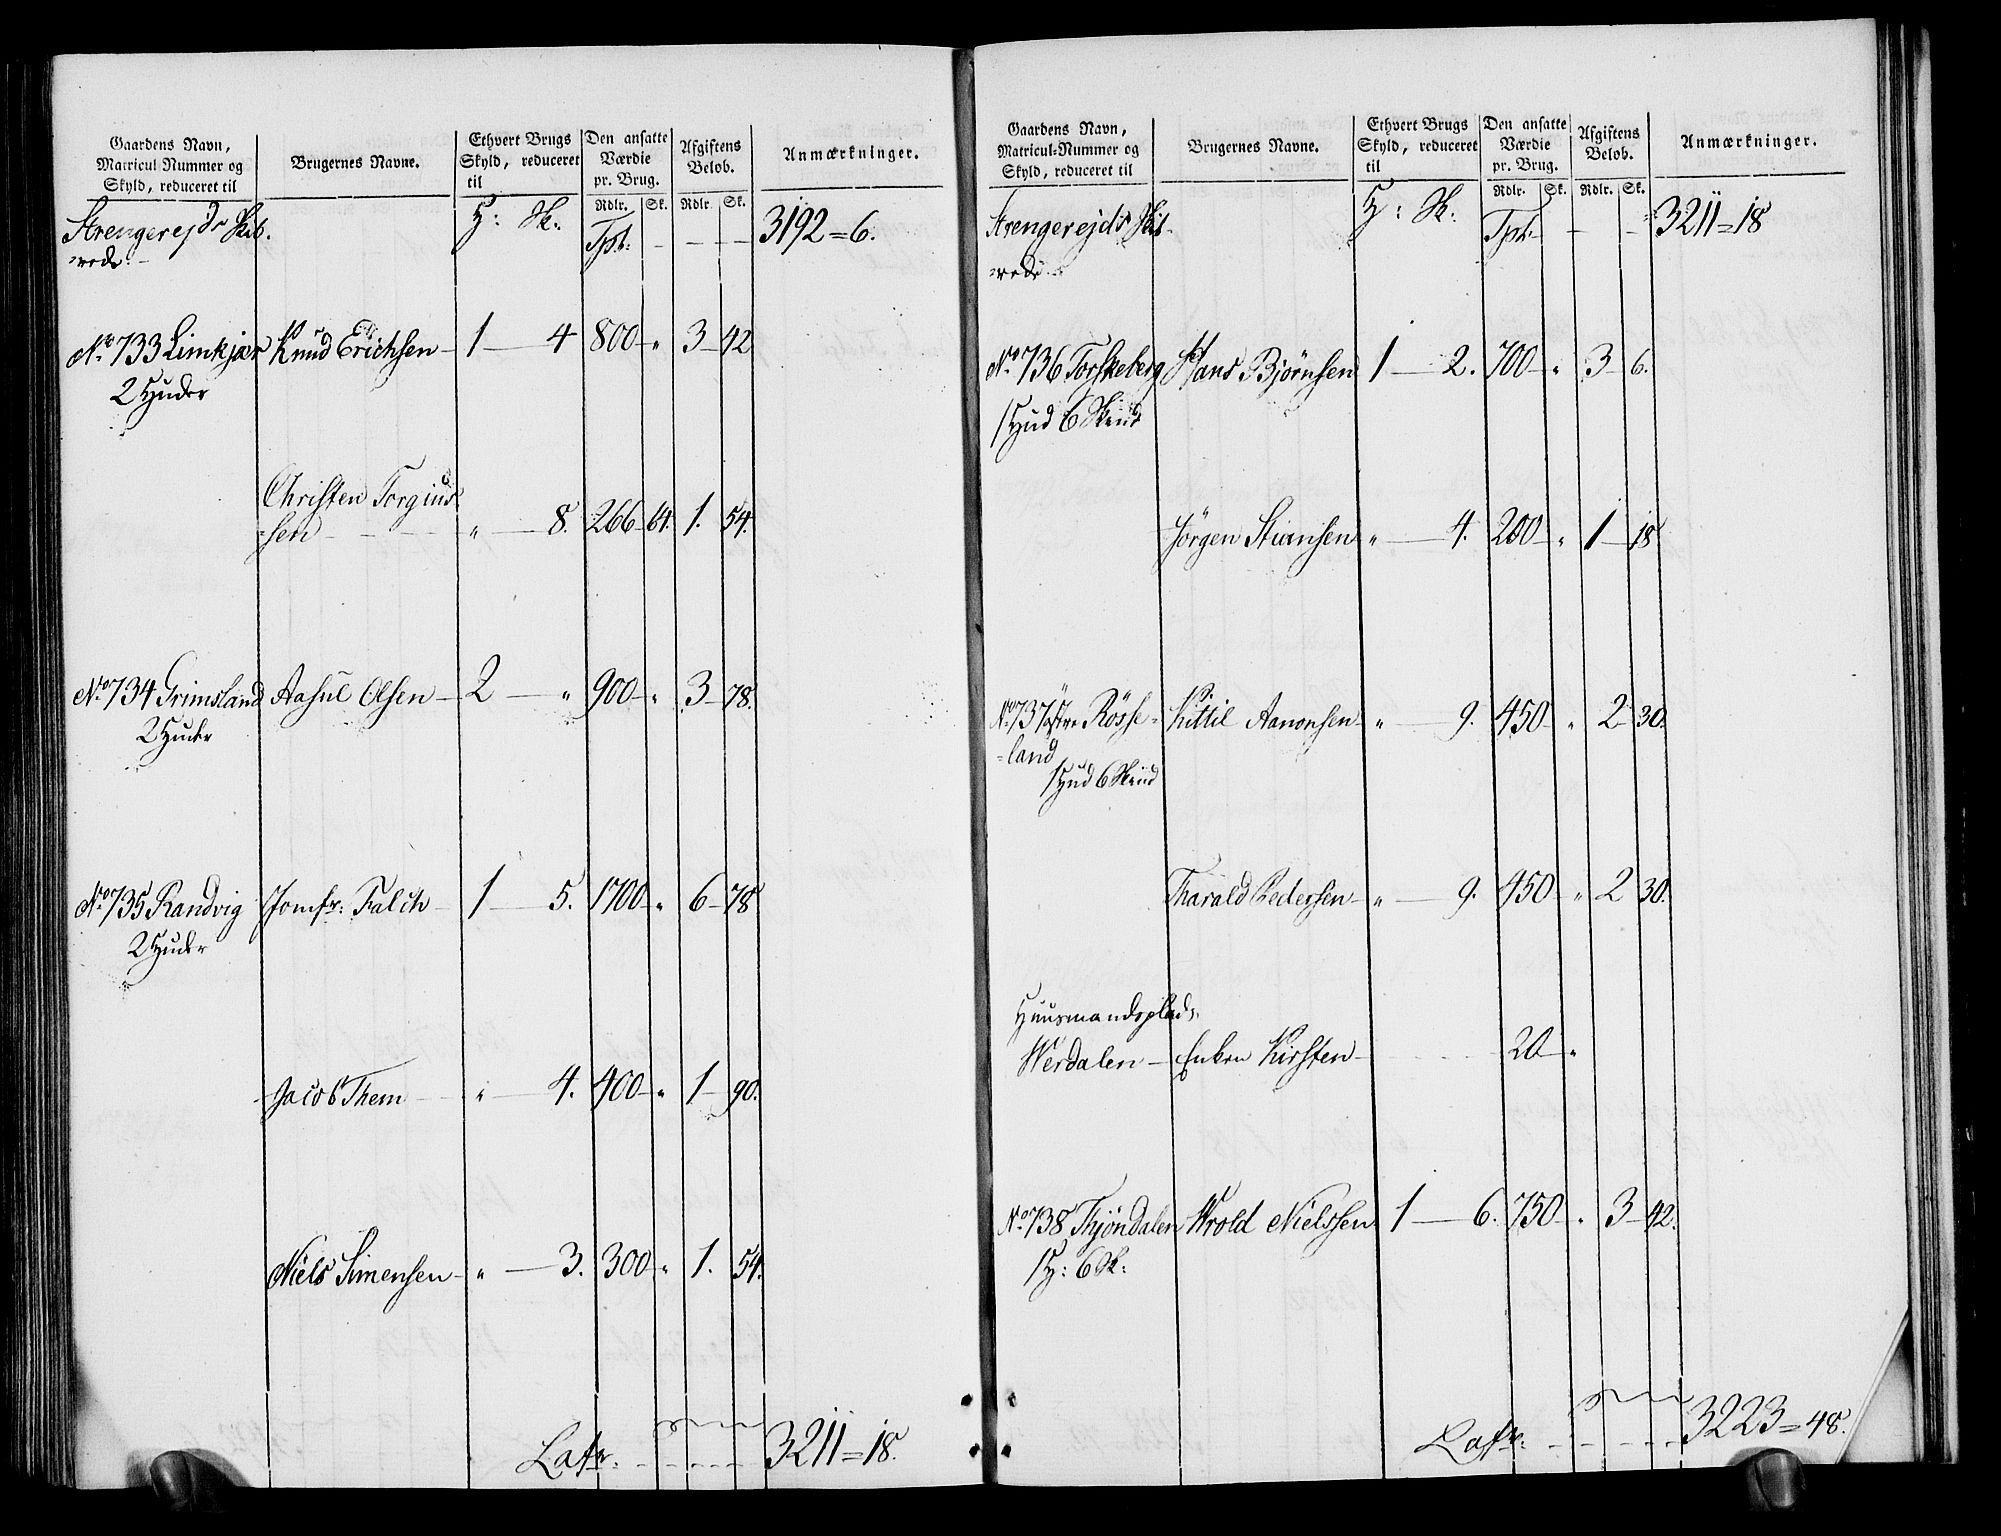 Gaardens Navn,
Matricul-Nummer og
Skyld, reduceret til
Brugernes Navne.
Ethvert Brugs
Skyld, reduceret
til
Den ansatte
Værdie
pr. Brug.
Afgiftens
Beløb.
Anmærkninger.
Rdlr. Sk. Rdlr. Sk.
Strengerejds Skib- H: Sk: Tpt: - - - 3192=6.
=rede.-
No 733 Limkjær Knud Erichsen - 1 - 4 800 - " 3 - 42
2 Huder
Christen Torgius-
=sen - - - - " - 8. 266 - 64. 1. 54.
No 734 Grimsland Aasul Olsen - 2 - " 900 - " 3 - 78.
2 Huder
No 735 Randvig Jomfr: Falch - 1 - 5. 1700 - " 6 - 78
2 Huder
Jacob Them - " - 4. 400 - " 1 - 90.
Niels Simensen - " - 3. 300 - " 1. 54.
Latr: - - - - - 3211=18.
Gaardens Navn,
Matricul-Nummer og
Skyld, reduceret til
Brugernes Navne.
Ethvert Brugs
Skyld, reduceret
til
Den ansatte
Værdie
pr. Brug.
Afgiftens
Beløb.
Anmærkninger.
Rdlr. Sk. Rdlr. Sk.
Strengerejds Skib- H: Sk: Tpt: - - 3211=18
=rede
No 736 Torskeberg Hans Bjørnsen 1 - 2. 700 - " 3 - 6.
1 Hud 6 Skind
Jørgen Stiansen " - 4. 200 - " 1 - 18
No 737 Østre Rösse= Kittil Aanonsen - " - 9. 450 - " 2 - 30.
=land
1 Hud 6 Skind
Tharald Pedersen - " - 9. 450 - " 2 30.
Huusmandsplads
Werdalen - Enken Kirsten - - - - 20 - "
No 738 Thjöndalen Wrold Nielssen 1 - 6. 750 - " 3 - 42.
1 H: 6 Sk:
Latr: - - - - - 3223=48.